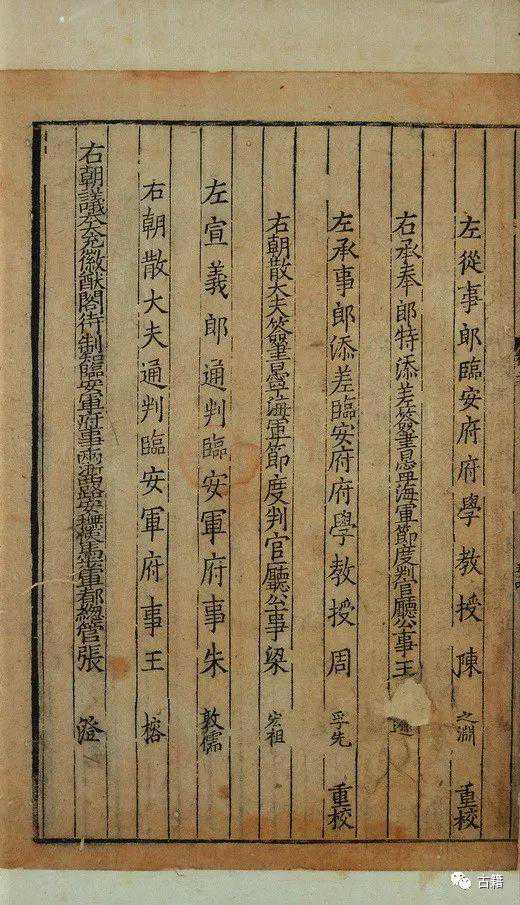 左從事郎臨安府府學教授陳 之淵 重校
右承奉郎特添差簽書寧海軍節度判官廳公事王
左承事郎添差臨安府府學教授周 孚先 重校
右朝散大夫簽書寧海軍節度判官廳公事梁 宏祖
左宣義郎通判臨安軍府事朱 敦儒
右朝散大夫通判臨安軍府事王 榕
右朝議大夫充徽猷閣待制知臨安軍府事兩浙西路安撫使馬步軍都總管張 澄
古籍